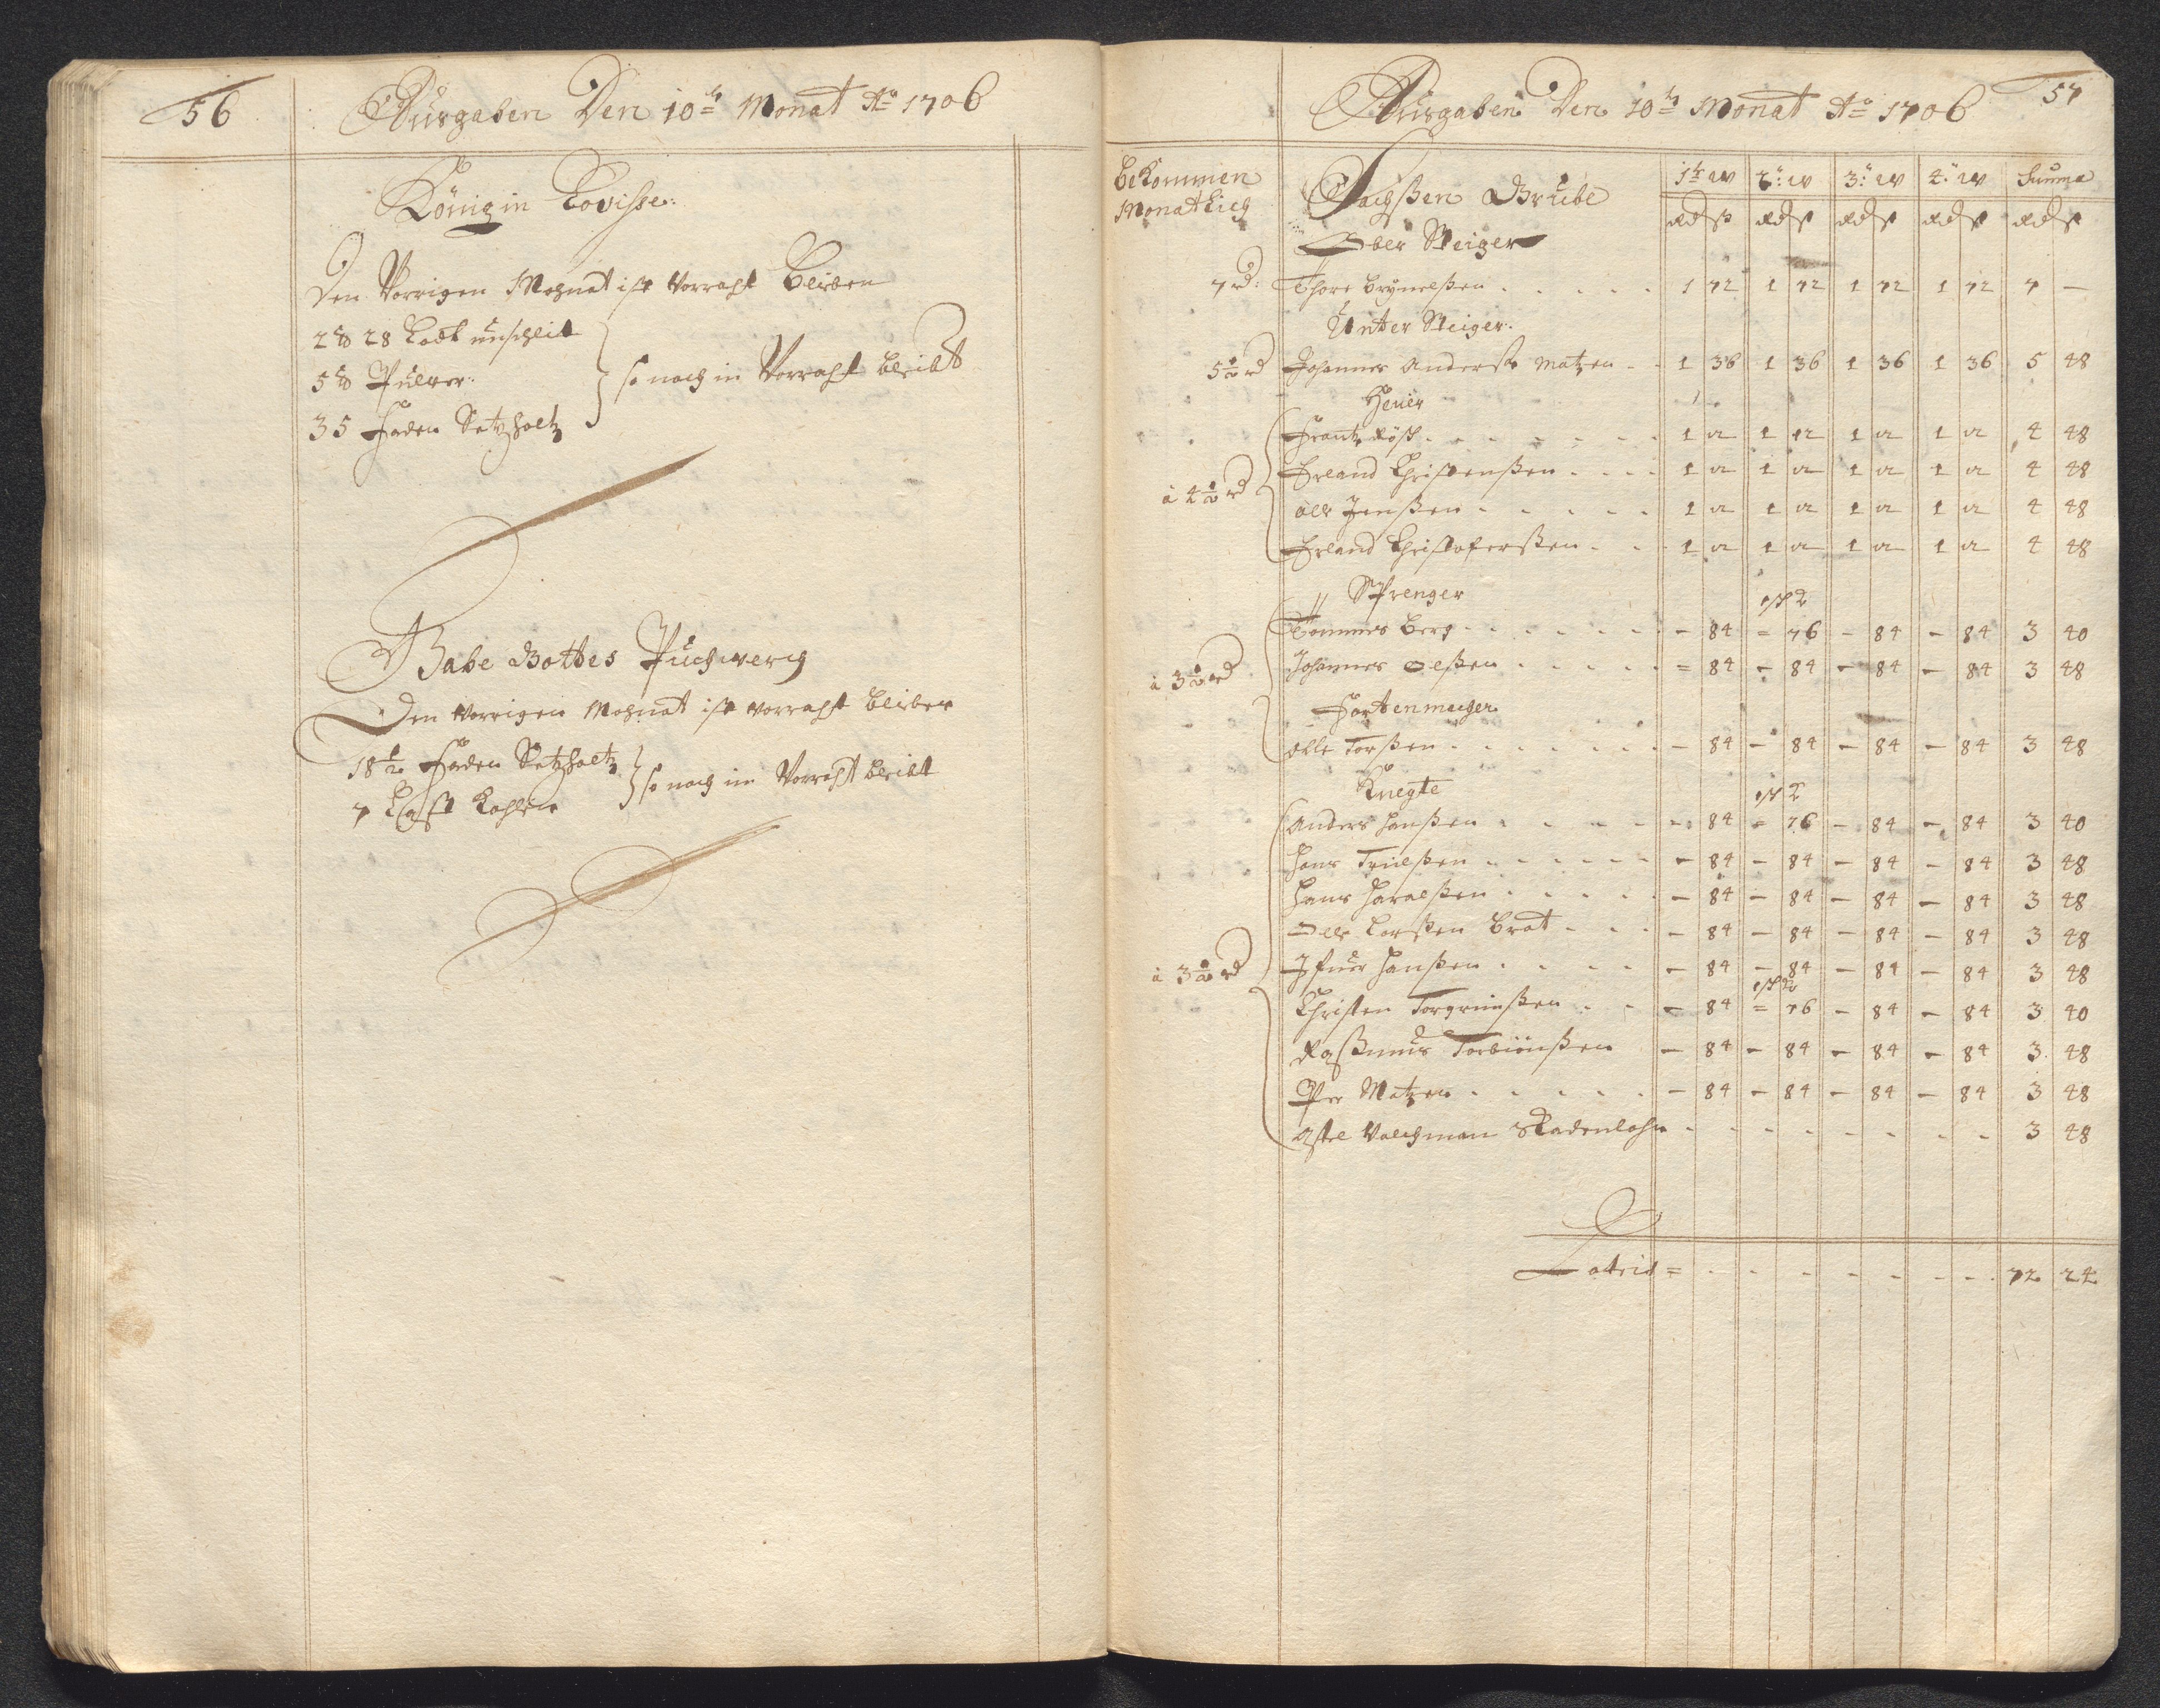 56
Ausgaben Den 10ten Monat Ao 1706
Königin Lovisse:
Den Vorrigen Mohnat ist Vorraht bleiben
2 ℔ 28 Lodt unschlit
5 ℔ Pulver:
35 Faden Setzholtz
so noch in Vorraht bleibt
Gabe Gottes Puchwerch
Den Vorrigen Mohnat ist vorraht bleiben
18 1/2 Faden Setzholtz
7 Last Kohlen
so noch im Vorraht bleibt
57
Ausgaben Den 10ten Monat Ao 1706
Bekommen Monatlich
Sachßen Grube
1te w 2: w 3: w 4: w Summa
rd ß rd ß rd ß rd ß rd ß
Ober Steiger
7 rd: Thore Brynelßen 1 72 1 72 1 72 1 72 7 —
Unter Steiger.
5 1/2 rd Johannes Anderß Matzen 1 36 1 36 1 36 1 36 5 48
Heuer
Frantz Röst 1 12 1 12 1 12 1 12 4 48
Erland Christenßen 1 12 1 12 1 12 1 12 4 48
à 4 1/2 rd
Olle Jenßen 1 12 1 12 1 12 1 12 4 48
Erland Christoferßen 1 12 1 12 1 12 1 12 4 48
Sprenger
1 sch 2
Tommes Berg — 84 — 76 — 84 — 84 3 40
à 3 1/2 rd Johannes Oelßen — 84 — 84 — 84 — 84 3 48
Hartenmeiger
Olle Torßen — 84 — 84 — 84 — 84 3 48
Knegte
1 sch 2
Anders Hanßen — 84 — 76 — 84 — 84 3 40
Hans Truelßen — 84 — 84 — 84 — 84 3 48
Hans Haralßen — 84 — 84 — 84 — 84 3 48
Olle Larßen Brat — 84 — 84 — 84 — 84 3 48
à 3 1/2 rd Ifuer Hanßen — 84 — 84 — 84 — 84 3 48
1 sch 2
Christen Torgrimßen — 84 — 76 — 84 — 84 3 40
Raßmus Torbiönßen — 84 — 84 — 84 — 84 3 48
Per Matzen — 84 — 84 — 84 — 84 3 48
Valchman 3 48
Latrid = 72 24